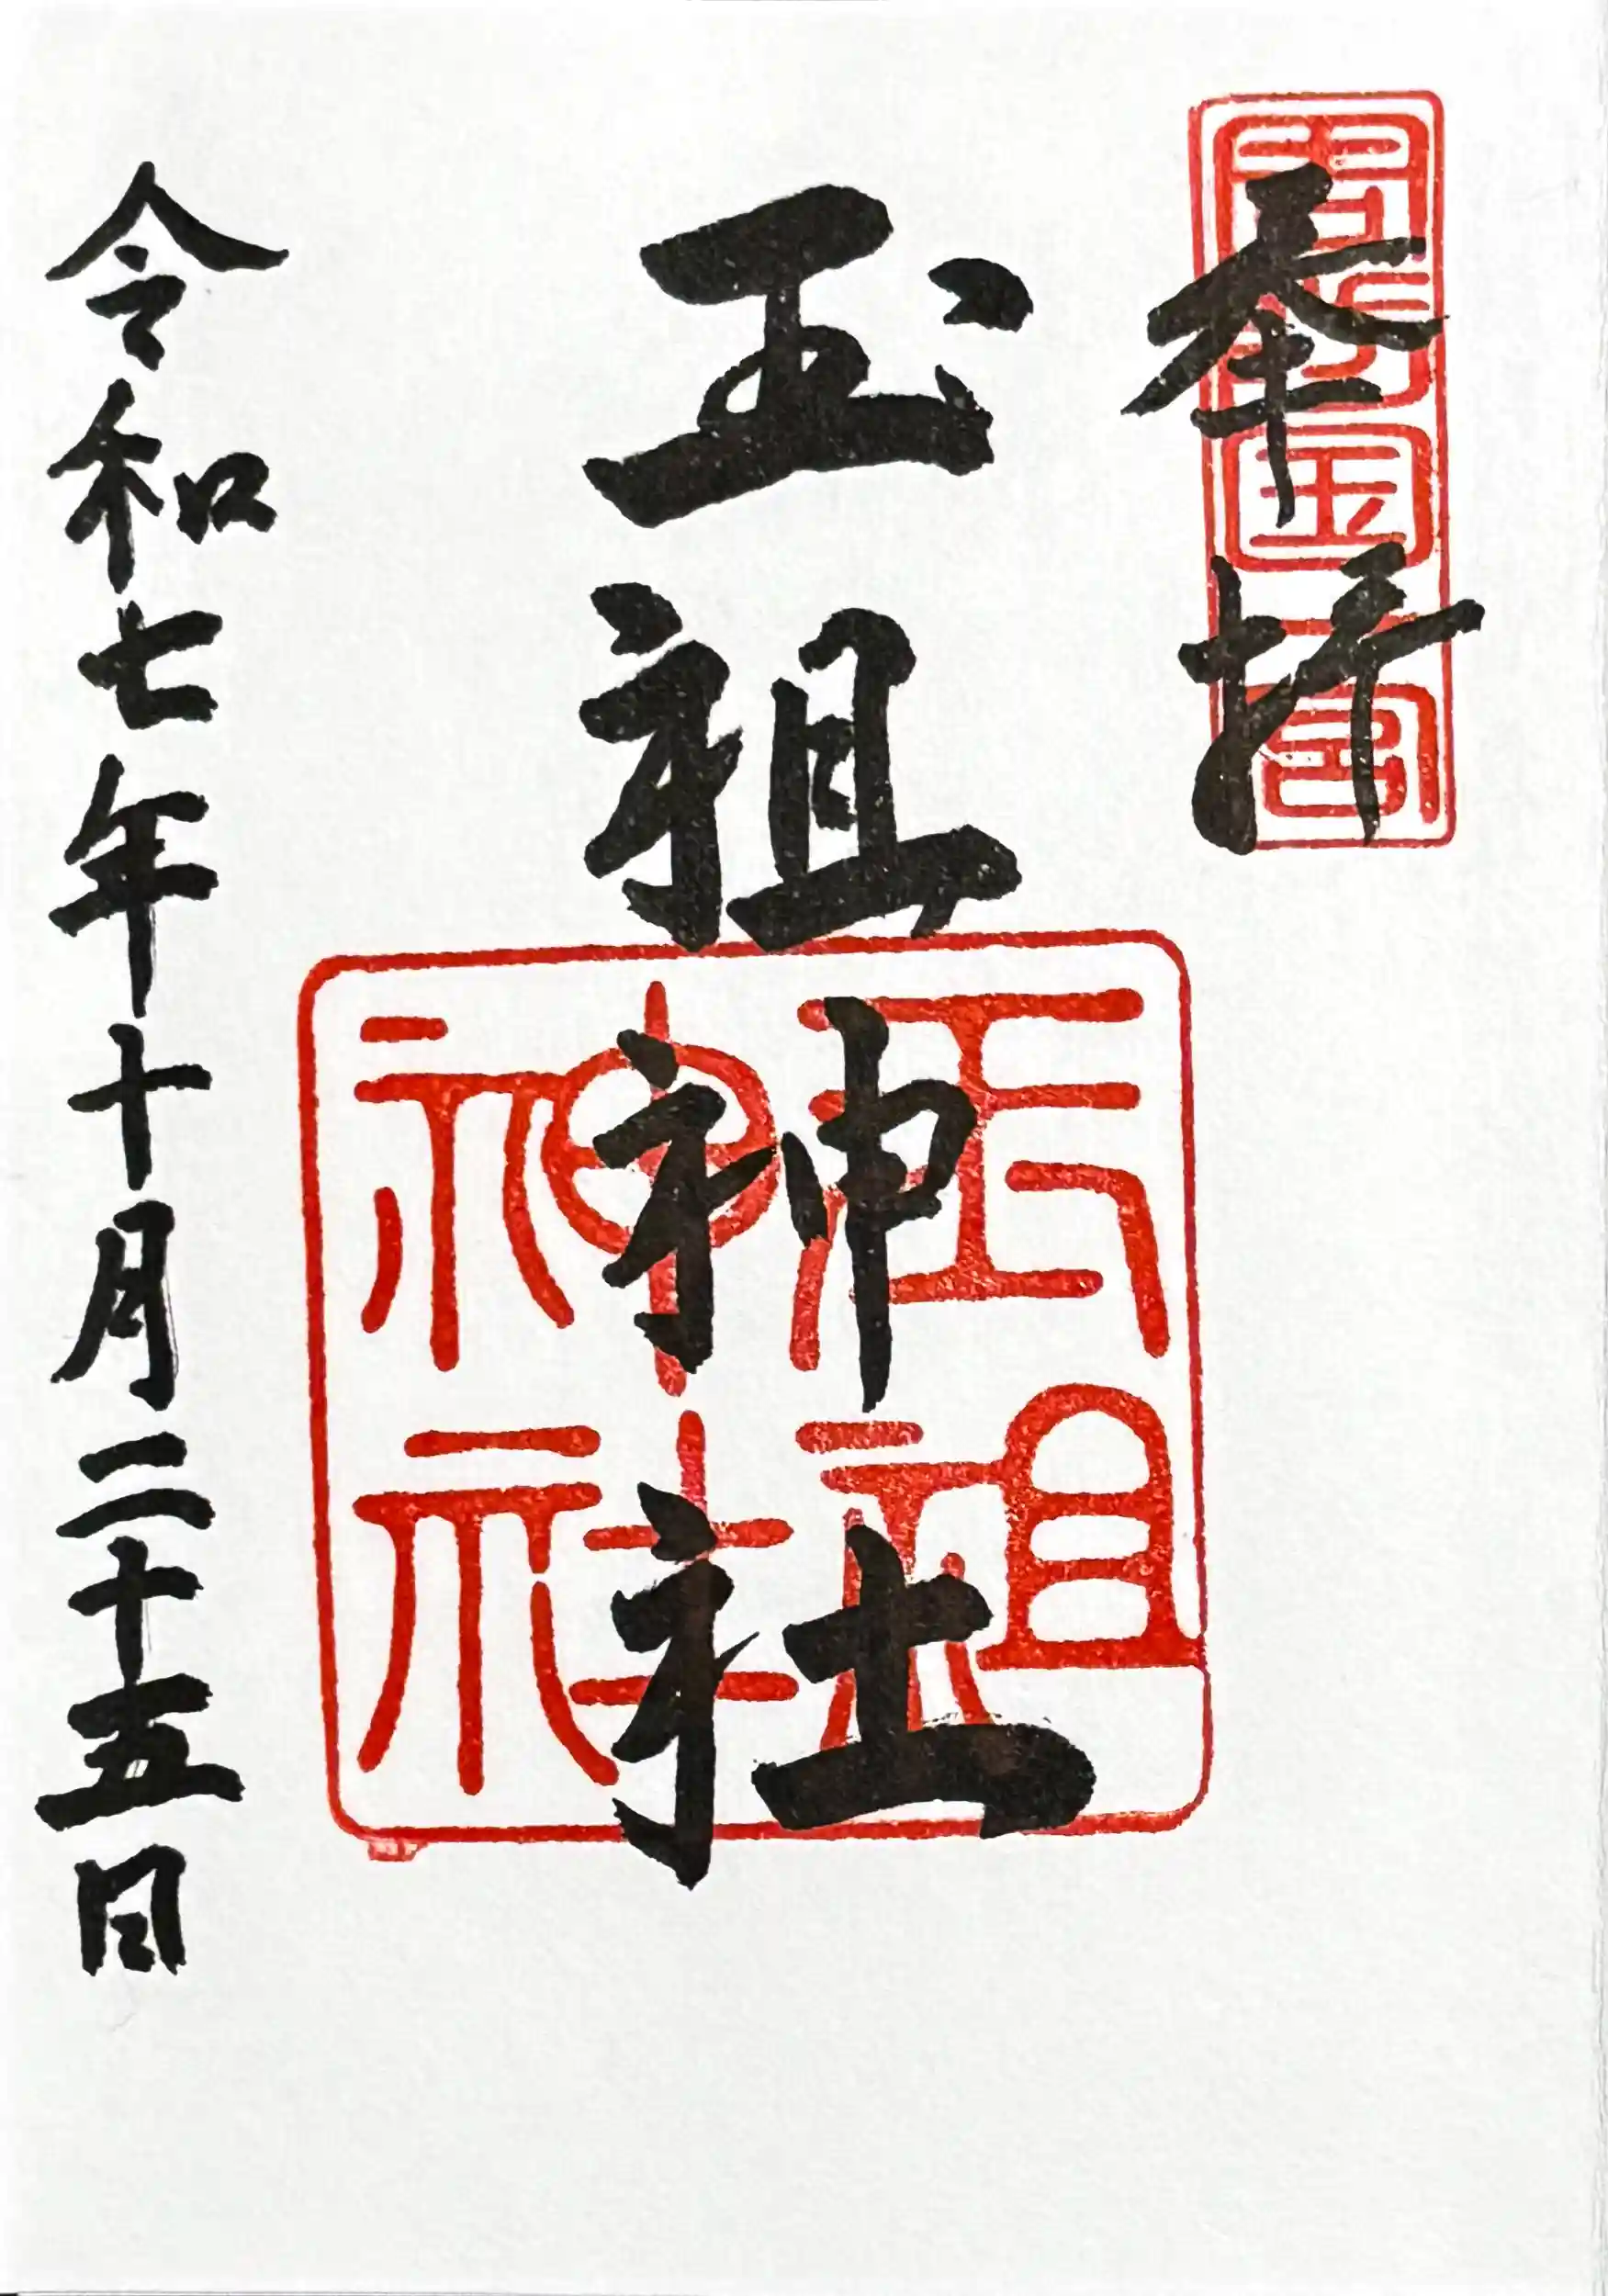 周防国一宮
奉拝
玉祖神社
玉祖
神社
令和七年十月二十五日